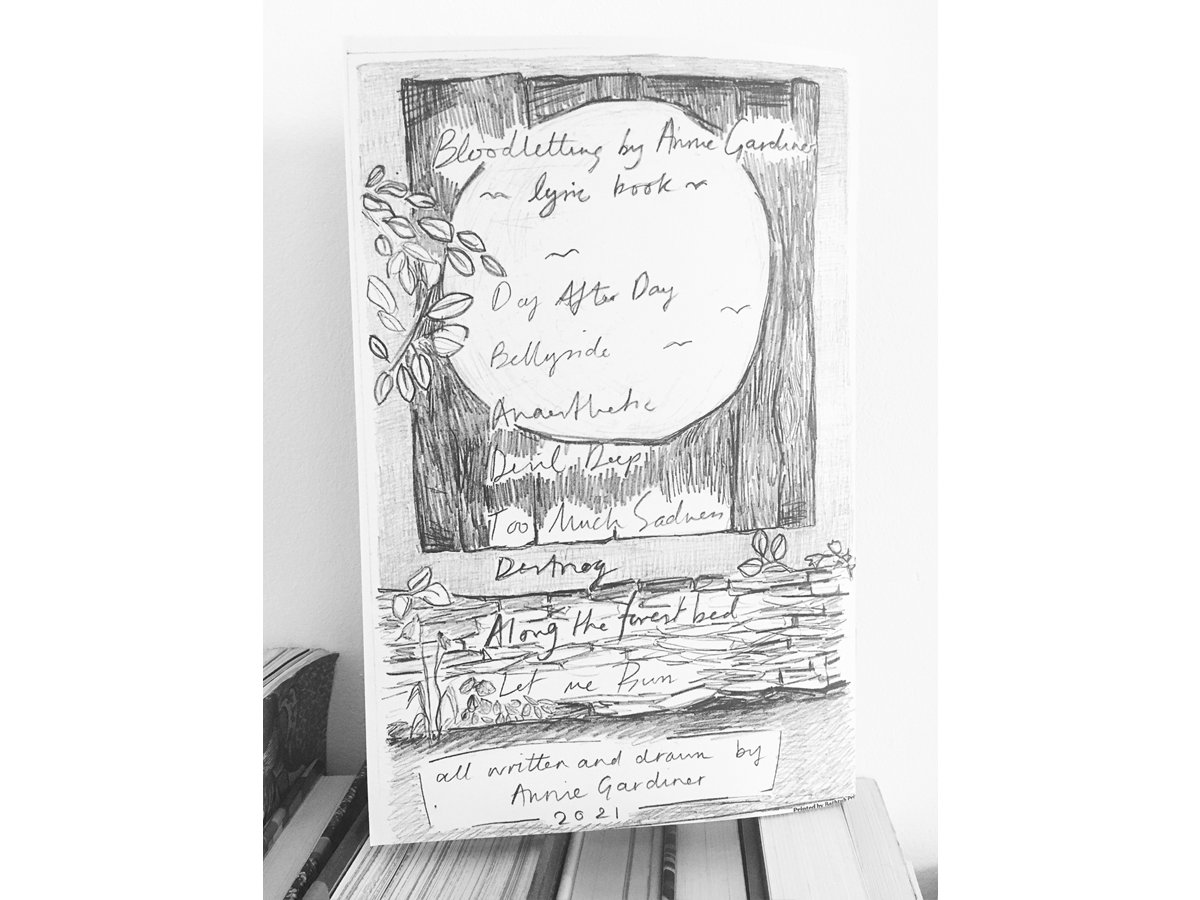 Bloodletting by Annie Gardiner
lyric book
Day After Day
Bellyside
Anaesthetic
Devil Deep
Too Much Sadness
Destroy
Along the forest bed
Let me Run
all written and drawn by
Annie Gardiner
2021
Printed by